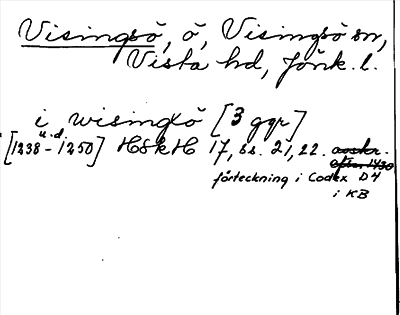 Visingsö, ö, Visingsö sn,
Vista hd, Jönk. l.
i wisingxö [3 ggr]
u.d.
[1238-1250] HSkH 17, ss. 21, 22. avskr.
efter 1430
förteckning i Codex D4
i KB